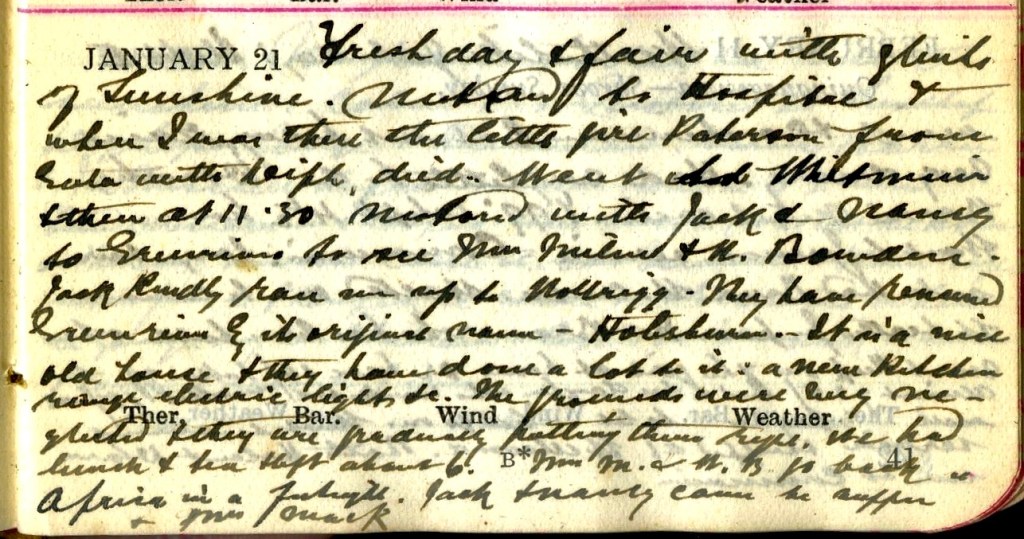 Ther. Bar. Wind Weather
JANUARY 21 Fresh day & fair with glints
of Sunshine. Motored to Hospital &
when I was there the little girl Paterson from
with died. Went
& then at 11.30 Motored with Jack & Nancy
to to see Mrs Milne & H. Bowden.
Jack kindly ran me up to . They have renamed
its original name - . - It is a nice
old house & they have done a lot to it: a new kitchen
range electric light &c. The grounds were very ne-
Ther. Bar. Wind Weather
glected & they are gradually putting them right. We had
lunch & tea & left about 6. B* Mrs M. & H. B go back to 41
Africa in a fortnight. Jack & Nancy came to supper
& Mrs Mack